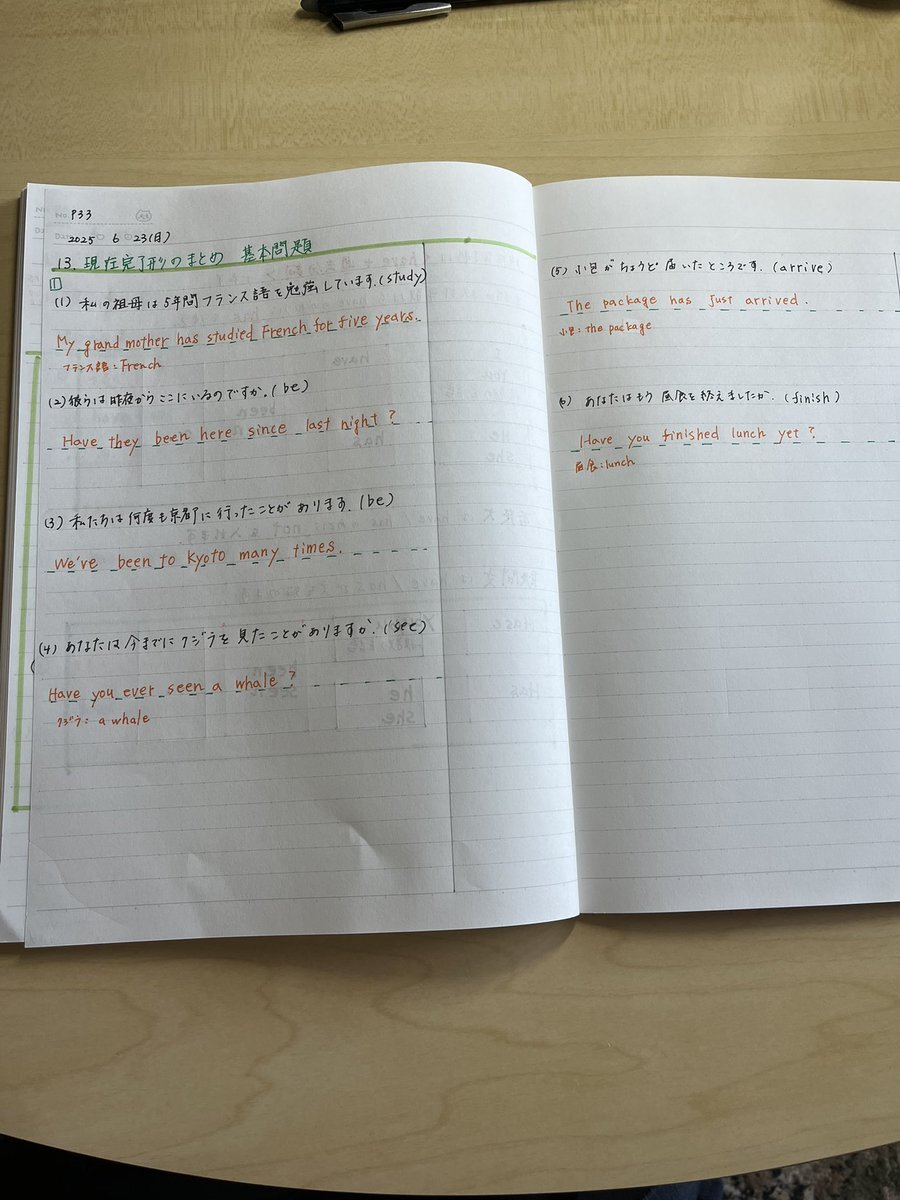 No. P33
2025 6 23(月)
13. 現在完了形のまとめ 基本問題
1
(1) 私の祖母は5年間フランス語を勉強しています.(study)
My grand mother has studied French for five years.
フランス語：French
(2) 彼らは昨夜からここにいるのですか.(be)
Have they been here since last night ?
(3) 私たちは何度も京都に行ったことがあります.(be)
We've been to Kyoto many times.
(4) あなたは今までにクジラを見たことがありますか.(see)
Have you ever seen a whale ?
クジラ：a whale
(5) 小包がちょうど届いたところです.(arrive)
The package has just arrived.
小包：the package
(6) あなたはもう昼食を終えましたか.(finish)
Have you finished lunch yet ?
昼食：lunch